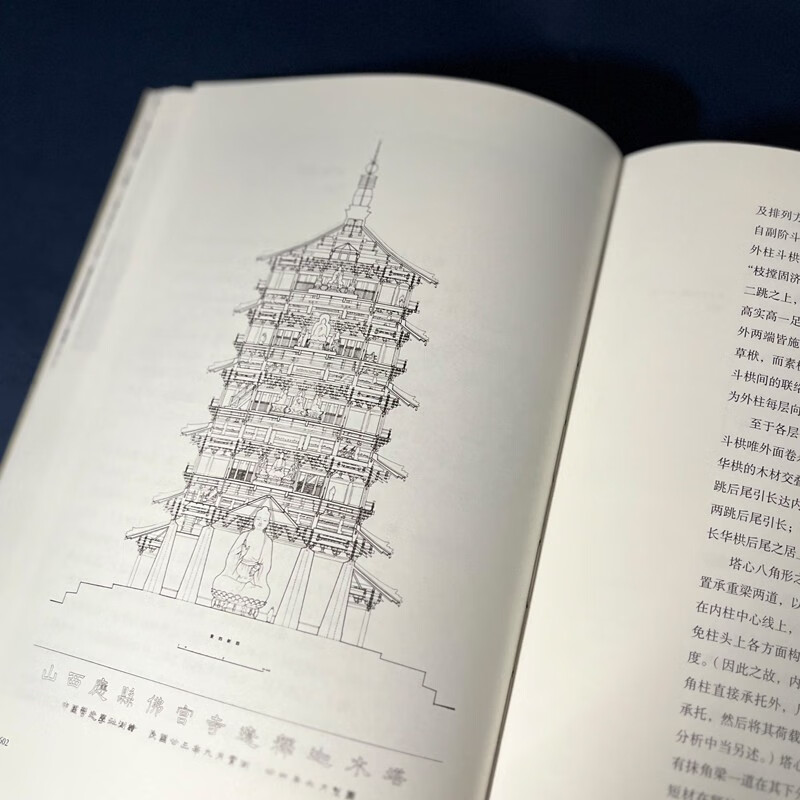 山西應縣佛宮寺遼釋迦木塔
中國營造學社測繪 民國廿三年九月實測 廿四年六月製圖
602
及排列方
自副阶斗
外柱斗栱
“枝撑固济
二跳之上，
高实高一足
外两端皆施
草栿，而素枋
斗栱间的联络
为外柱每层向
至于各层
斗栱唯外面卷
华栱的木材交叠
跳后尾引长达内
两跳后尾引长；
长华栱后尾之居
塔心八角形之
置承重梁两道，以
在内柱中心线上，
免柱头上各方面构
度。（因此之故，内
角柱直接承托外，
承托，然后将其荷载
分析中当另述。）塔心
有抹角梁一道在其下分
短材在